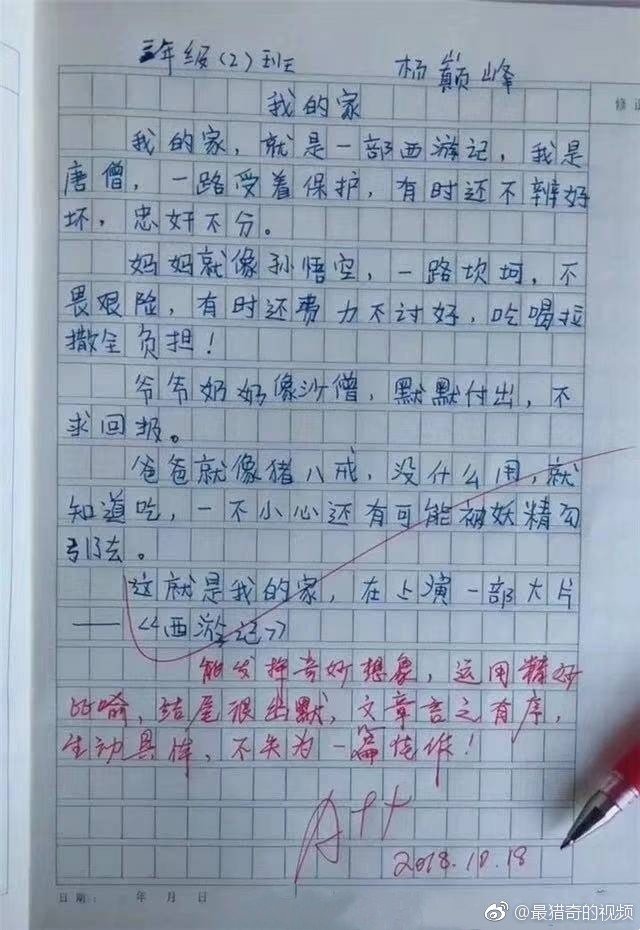 三年级(2)班 杨巅峰
修正
我的家
我的家，就是一部西游记，我是
唐僧，一路受着保护，有时还不辨好
坏，忠奸不分。
妈妈就像孙悟空，一路坎坷，不
畏艰险，有时还费力不讨好，吃喝拉
撒全负担！
爷爷奶奶像沙僧，默默付出，不
求回报。
爸爸就像猪八戒，没什么用，就
知道吃，一不小心还有可能被妖精勾
引去。
这就是我的家，在上演一部大片
——《西游记》
能发挥奇妙想象，运用精妙
比喻，结尾很幽默，文章言之有序，
生动具体，不失为一篇佳作！
A++
2018.10.18
日期： 年 月 日
@最猎奇的视频